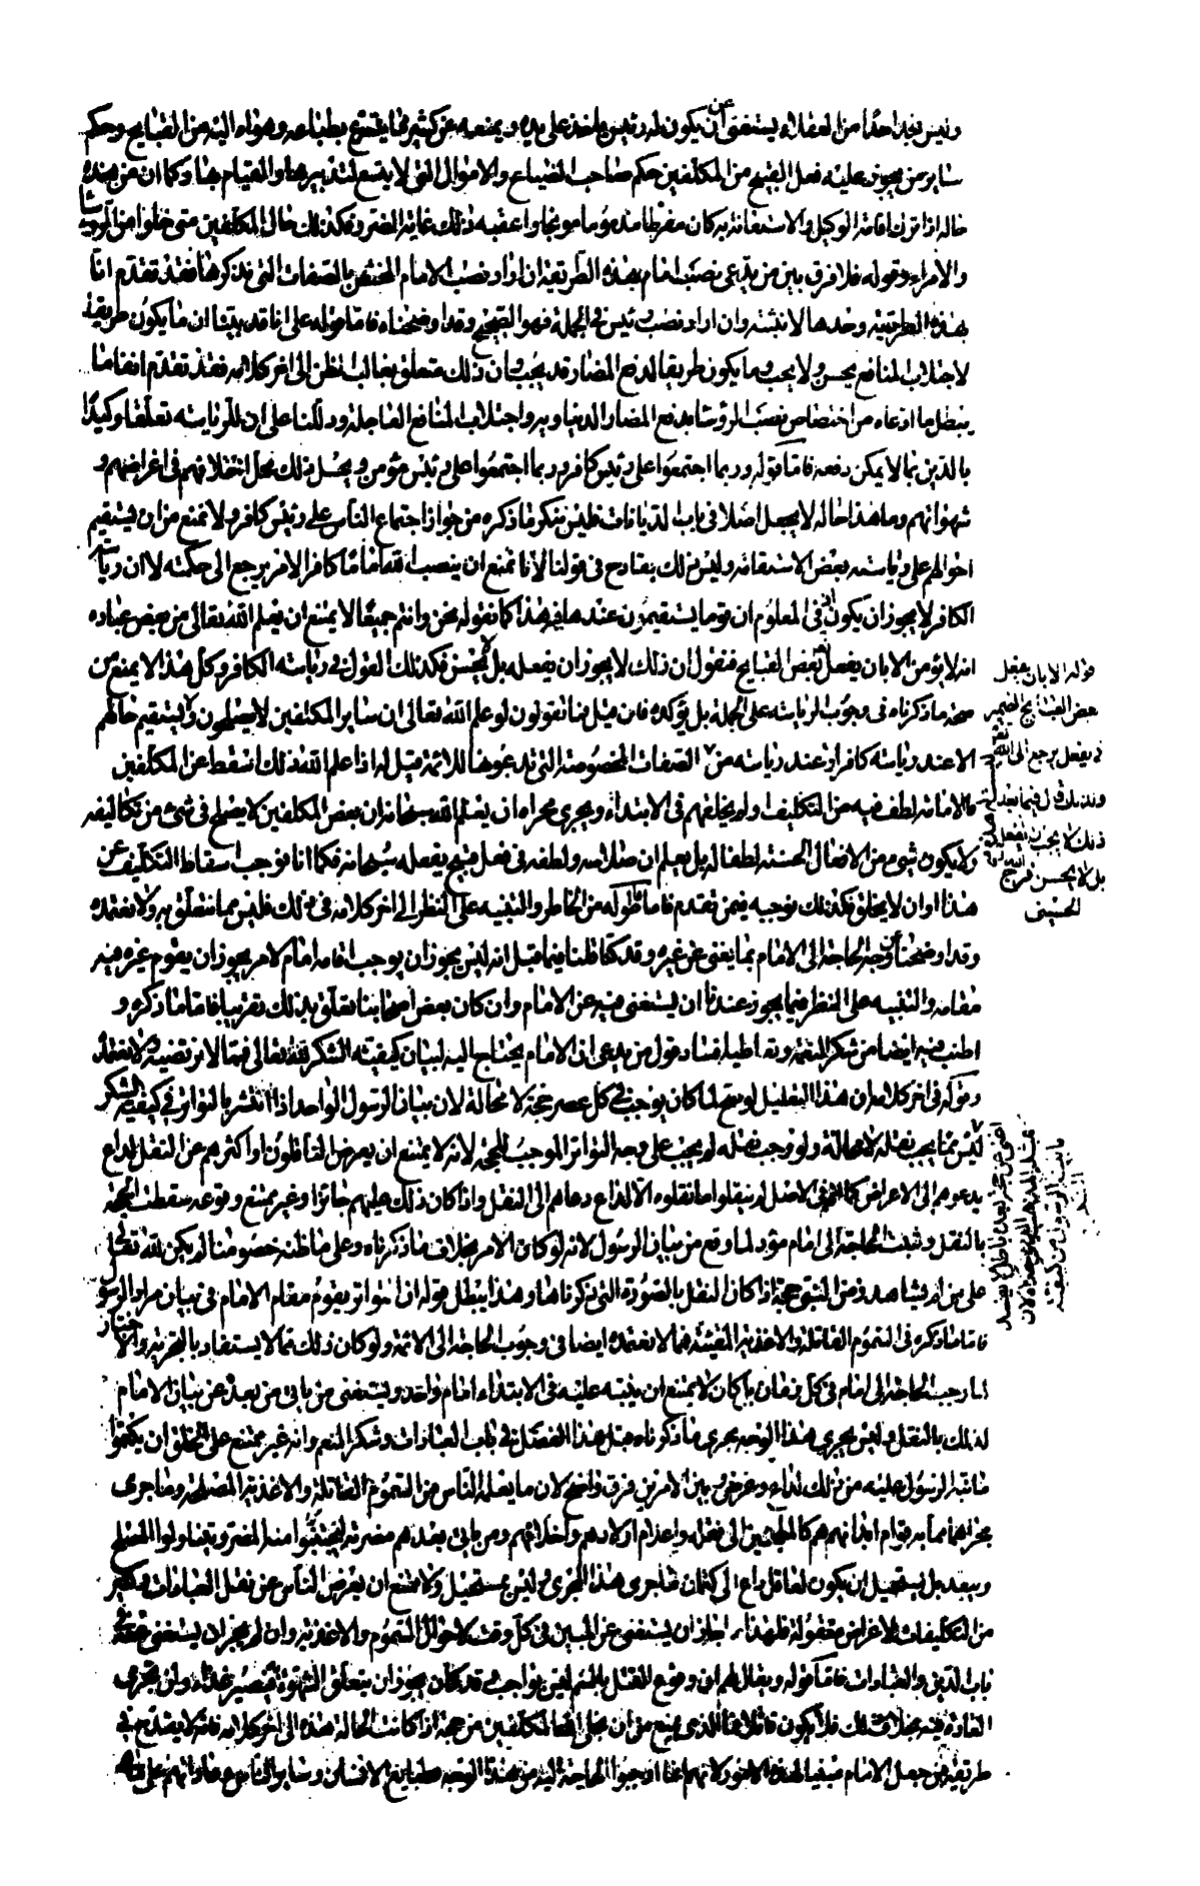 وليس نجد احدا من العقلاء يستغنى عن ان يكون له رئيس ياخذ على يده ويمنعه عن كثير مما يتسرع بطباعه وهواه اليه من القبايح وحكم
ساير من يجوز عليه فعل القبيح من المكلفين حكم صاحب الضياع والاموال التى لا يتسع لتدبيرها والقيام بها وكما ان من هذه
حاله اذا ترك اقامة الوكيل والاستعانة به كان مفرطا مذموما موبخا واعقبه ذلك غاية الضرر فكذلك حال المكلفين متى خلوا من الرؤساء
والامراء وقوله فلا فرق بين من يدعى نصب امام بهذه الطريقة ان اراد نصب الامام المختص بالصفات التى نذكرها فقد تقدم انا
بهذه الطريقة وحدها لا نثبته وان اراد نصب رئيس فى الجملة فهو الصحيح وقد اوضحناه فاما قوله على انا قد بينا ان ما يكون طريقة
لاجتلاب المنافع يحسن ولا يجب وما يكون طريقا لدفع المضار قد يجب وان ذلك متعلق بغالب الظن الى اخر كلامه فقد تقدم انفا ما
يبطل ما ادعاه من اختصاص نصب الرؤساء بدفع المضار الدنياوية واجتلاب المنافع العاجلة ودللنا على ان للرئاسة تعلقا وكيدا
بالدين بما لا يمكن دفعه فاما قوله وربما اجتمعوا على رئيس كافر وربما اجتمعوا على رئيس مؤمن ويحسل ذلك محل اختلافهم فى اغراضهم و
شهواتهم وما هذا حاله لا يجعل اصلا فى باب الديانات فليس ننكر ما ذكره من جواز اجتماع الناس على رئيس كافر ولا نمنع من ان يستقيم
احوالهم على رئاسته بعض الاستقامة وليس ذلك بقادح فى قولنا لانا نمنع ان ينصب الله اماما كافرا لامر يرجع الى حكمته لا ان رئاسة
الكافر لا يجوز ان يكون فى المعلوم ان قوما يستقيمون عندها فى هذا كما نقوله نحن وانتم جميعا لا يمتنع ان يعلم الله تعالى من بعض عباده
انه لا يؤمن الا بان يفعل بعض القبايح فنقول ان ذلك لا يجوز ان يفعله بل لا يحسن فكذلك القول فى رئاسة الكافر وكل هذا لا يمنع من
صحة ما ذكرناه فى وجوب الرئاسة على الجملة بل يؤكده فان قيل فما تقولون لو علم الله تعالى ان ساير المكلفين لا يصلحون ولا يستقيم حالهم
الا عند رئاسة كافر او عند رئاسة من لا الصفات المخصوصة التى تدعونها للائمة قيل له اذا علم الله ذلك اسقط عن المكلفين
ما الامامة لطف فيه من التكليف او لم يخلقهم فى الابتداء ويجرى مجراه ان يعلم الله سبحانه ان بعض المكلفين لا يصلح فى شىء من تكاليفه
ولا يكون شىء من الافعال الحسنة لطفا له بل يعلم ان صلاحه ولطفه فى فعل قبيح يفعله سبحانه فكما انا نوجب اسقاط التكليف عن
هذا او ان لا يخلق فكذلك نوجبه فيمن تقدم فاما قوله من الخاطر والتنبيه على النظر الى اخر كلامه فى ذلك فليس مما نتعلق به ولا نعتمده
وقد اوضحنا عن وجه الحاجة الى الامام بما يغنى عن غيره وقد كنا قلنا فيما قبل انه ليس يجوز ان يوجب اقامة امام لامر يجوز ان يقوم غيره فيه
مقامه والتنبيه على النظر فيما يجوز عندنا ان يستغنى فيه عن الامام وان كان بعض اصحابنا تعلق بذلك تقريبا فاما ما ذكره و
اطنب فيه ايضا من شكر النعمة وقصد اطياء فساد قول من يدعى ان الامام يحتاج اليه لبيان كيفية الشكر لله تعالى فمما لا نرتضيه ولا نعتمده
وقوله فى اخر كلامه ان هذا التعليل لو صح لما كان يوجب فى كل عصر حجة لا محالة لان بيان الرسول الواحد اذا انتشر بالتواتر فى كيفية الشكر
ليس مما يجب نقله لا محالة ولو وجب نقله لم يجب على وجه التواتر الموجب للحجة لانه لا يمتنع ان يعرض الناقلون او اكثرهم عن النقل لداع
يدعوهم الى الاعراض كما انهم فى الاصل لم ينقلوا ما نقلوه الا لداع دعاهم الى النقل واذا كان ذلك عليهم جائزا وغير ممتنع وقوعه سقطت الحجة
بالنقل وثبتت الحاجة الى امام مؤد لما وقع من بيان الرسول لانه لو كان الامر بخلاف ما ذكرناه وعلى ما ظنه خصومنا لم يكن لله تعالى
على من لم يشاهد زمن النبى حجة اذا كان النقل بالصورة التى ذكرناها وهذا يبطل قوله ان التواتر يقوم مقام الامام فى بيان مراد الرسول
فاما ما ذكره فى السموم القاتلة والاغذية المغيثة فمما لا نعتمده ايضا فى وجوب الحاجة الى الائمة ولو كان ذلك مما لا يستفاد بالتجربة والاختبار
لما وجب الحاجة الى امام فى كل زمان بل كان لا يمتنع ان ينبه عليه فى الابتداء امام واحد ويستغنى من ياتى من بعد عن بيان الامام
لذلك بالنقل وليس يجرى هذا الوجه مجرى ما ذكرناه قبل هذا الفصل فى باب العبادات وشكر المنعم وانه غير ممتنع على الخلق ان يكتموا
ما نبه الرسول عليه من ذلك لداع وغرض وبين الامرين فرق واضح لان ما يعلمه الناس من السموم القاتلة والاغذية المصلحة وما جرى
مجراهما مما به قوام ابدانهم هم كالملجئين الى فعله واعلام اولادهم واخلافهم ومن ياتى بعدهم مضرته ليجتنبوا منه المضر ويتناولوا المصلح
ويبعد بل يستحيل ان يكون لعاقل داع الى كتمان ما جرى هذا المجرى وليس يستحيل ولا يمتنع ان يعرض الناس عن نقل العبادات وكثير
من التكليفات لاغراض معقولة فلهذا جاز ان يستغنى عن المبين فى كل وقت لاحوال السموم والاغذية وان لم يجز ان يستغنى عنه فى
باب الدين والعبادات فاما قوله ويقال لهم ان وقوع القتل بالسم ليس بواجب قد كان يجوز ان يتعلق الشهوة فيصير غذاء وان تجرى
العادة فيه بخلاف ذلك فلا يكون قاتلا فما الذى يمنع من ان يخلى الله المكلفين من حجة اذا كانت الحالة هذه الى اخر كلامه فانه لا يقدح فى
طريقة من جعل الامام مبينا لهذه الامور لانهم انما اوجبوا الحاجة اليه من هذا الوجه وطبايع الانسان وساير الناس وعاداتهم على ما هى
قوله الا بان يفعل
بعض القبايح الضمير
فى يفعل يرجع الى الله تعالى
ولذلك قال فيما بعد ان
ذلك لا يجوز ان يفعله
بل لا يحسن فرج
الحسينى